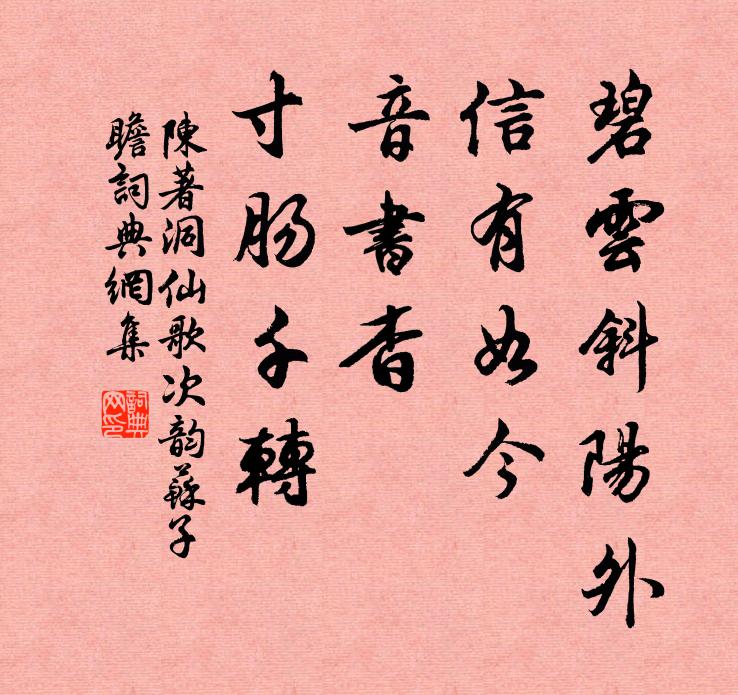 碧雲斜陽外
信有如今
音書杳
寸腸千轉
陳著洞仙歌次韵蘇子
瞻詞典網集
詞典
网印